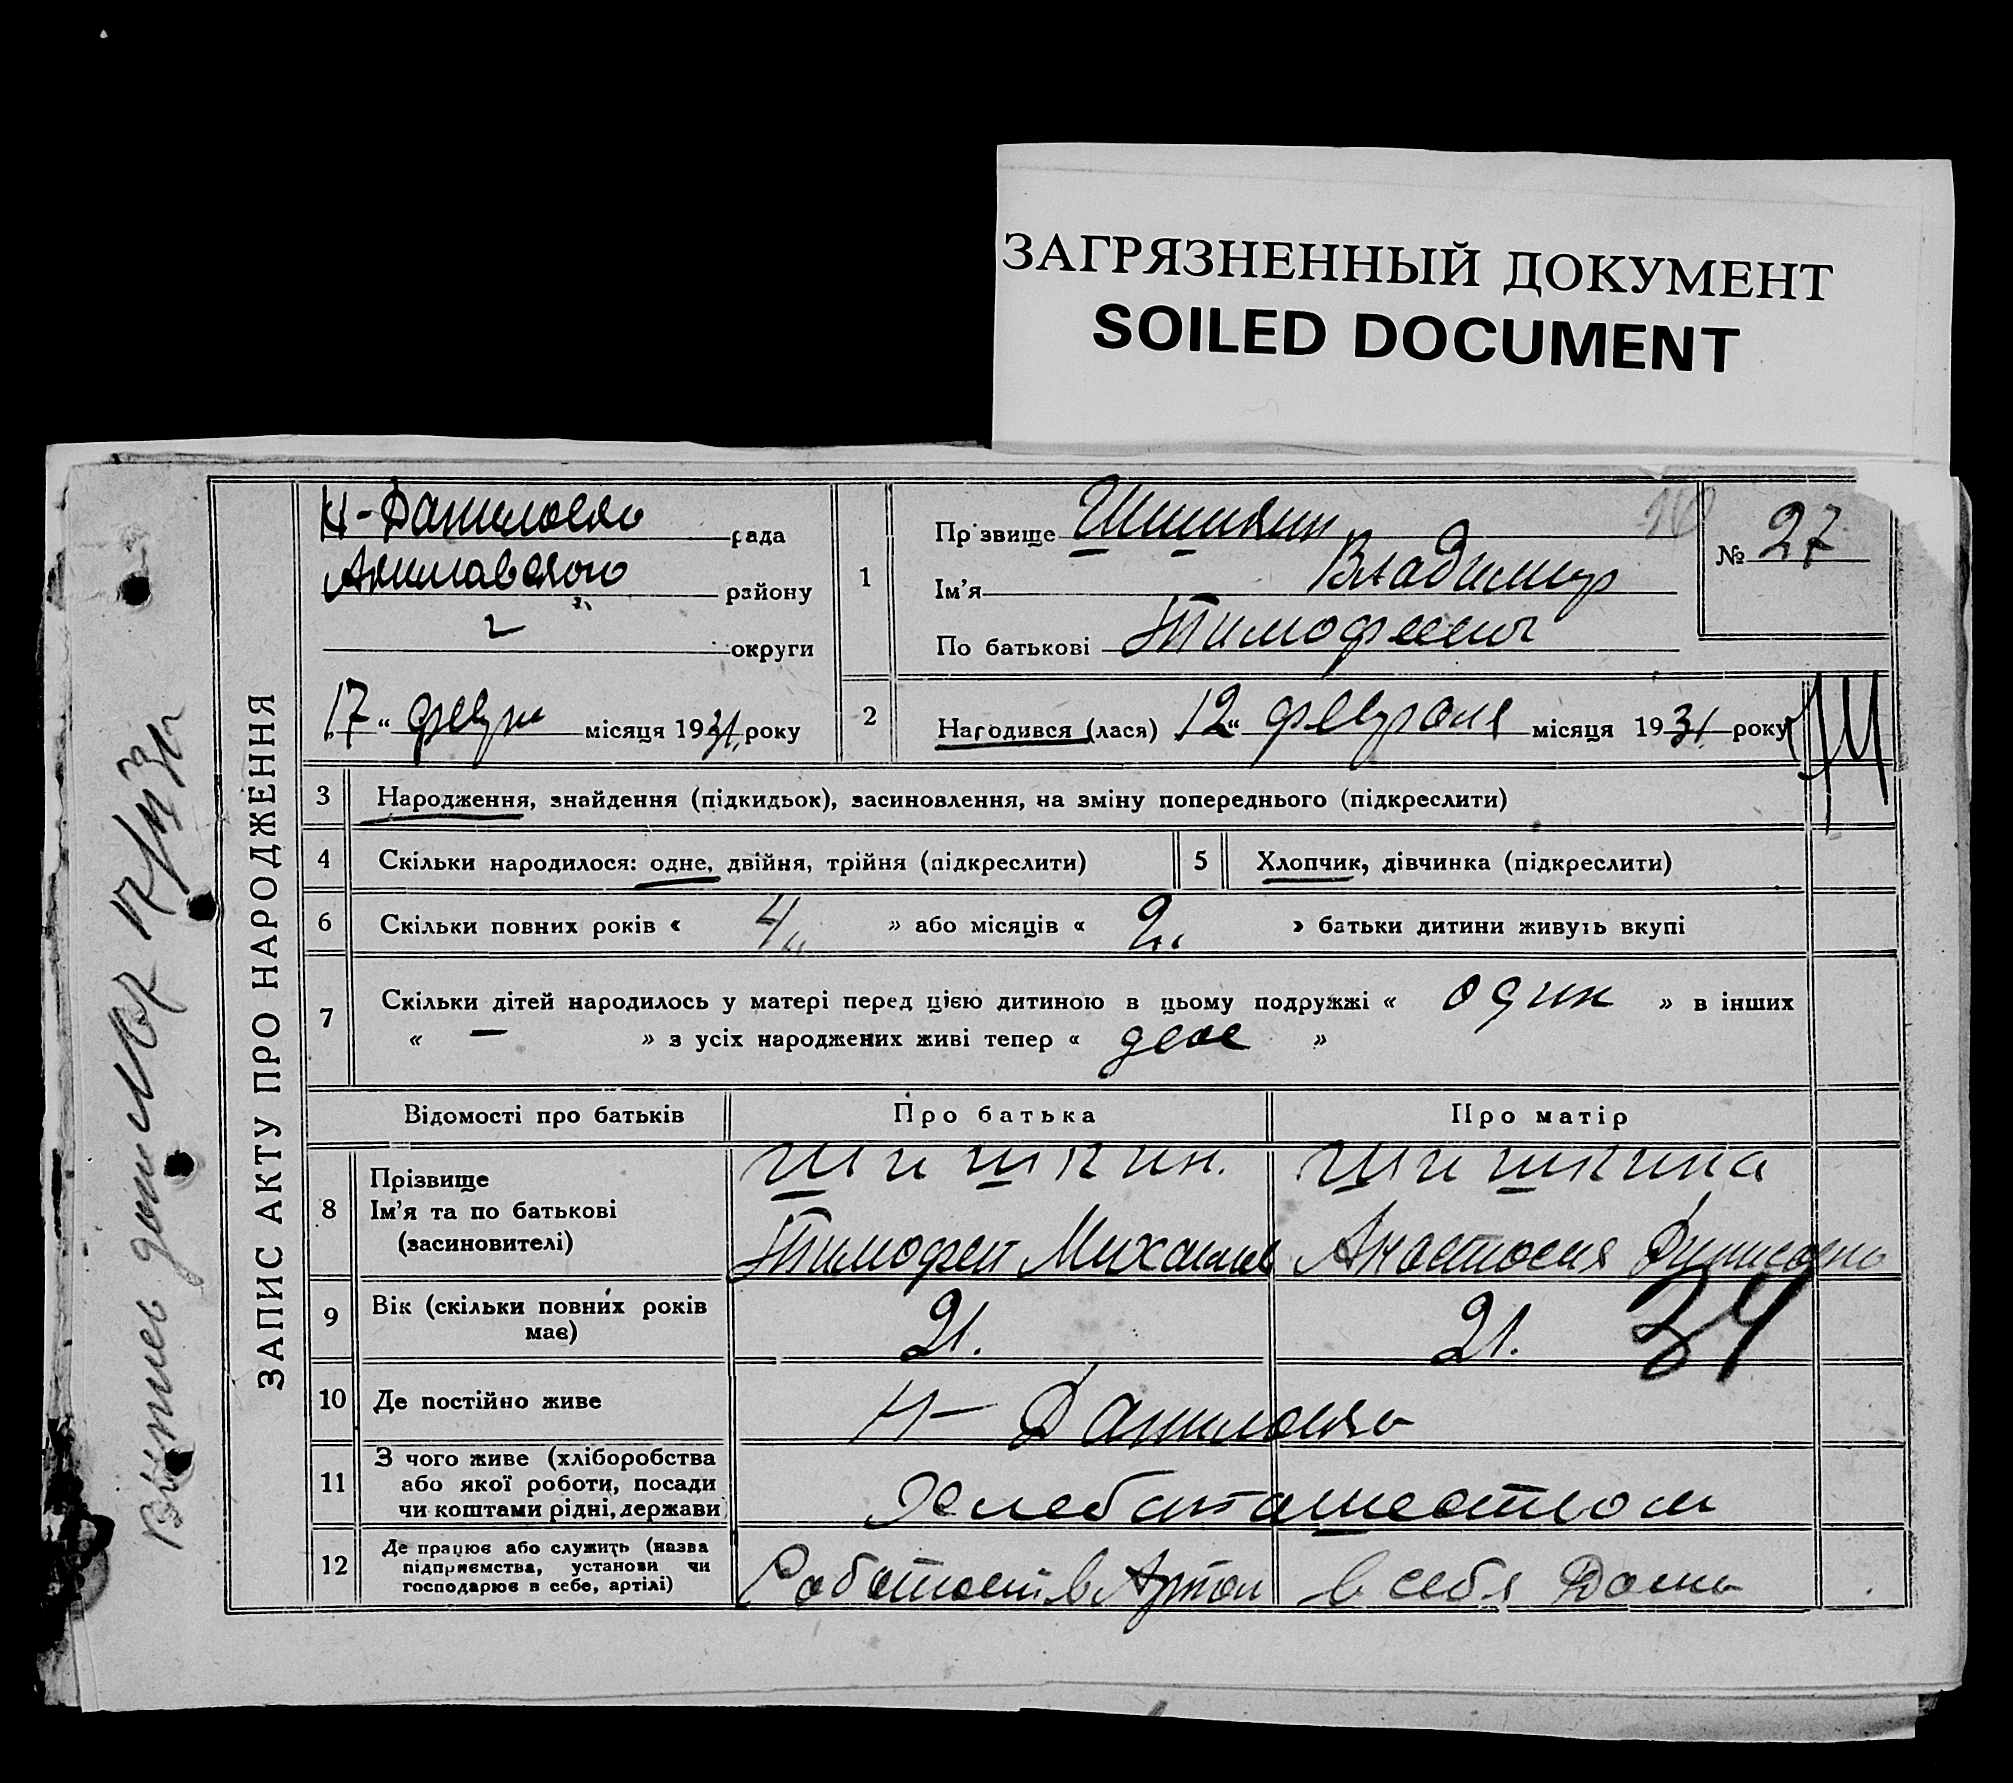 ЗАГРЯЗНЕННЫЙ ДОКУМЕНТ
SOILED DOCUMENT
ЗАПИС АКТУ ПРО НАРОДЖЕННЯ
Н-Даниловка рада
району
округи
"17" февр місяця 1931 року
1
Прізвище Шишкин
Ім'я Владимир
По батькові Тимофеевич
№ 27
2 Народився (лася) "12" февраля місяця 1931 року
3 Народження, знайдення (підкидьок), засиновлення, на зміну попереднього (підкреслити)
4 Скільки народилося: одне, двійня, трійня (підкреслити)
5 Хлопчик, дівчинка (підкреслити)
6 Скільки повних років « 4 » або місяців « 2 » батьки дитини живуть вкупі
7 Скільки дітей народилось у матері перед цією дитиною в цьому подружжі « один » в інших
« — » з усіх народжених живі тепер « двое »
Відомості про батьків Про батька Про матір
8 Прізвище
Ім'я та по батькові
(засиновителі)
Шишкин. Шишкина
Тимофей Михайлов Анастасия
9 Вік (скільки повних років
має)
21. 21. 34
10 Де постійно живе Н-Даниловка
11 З чого живе (хліборобства
або якої роботи, посади
чи коштами рідні, держави
12 Де працює або служить (назва
підприємства, установи чи
господарює в себе, артілі)
в себя Дома